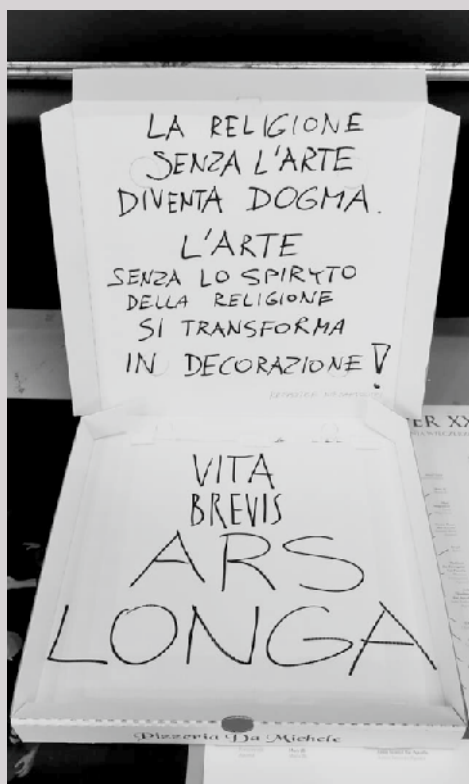 LA RELIGIONE
SENZA L'ARTE
DIVENTA DOGMA.
L'ARTE
SENZA LO SPIRYTO
DELLA RELIGIONE
SI TRANSFORMA
IN DECORAZIONE!
ER XX
VITA
BREVIS
ARS
LONGA
Pizzeria Da Michele